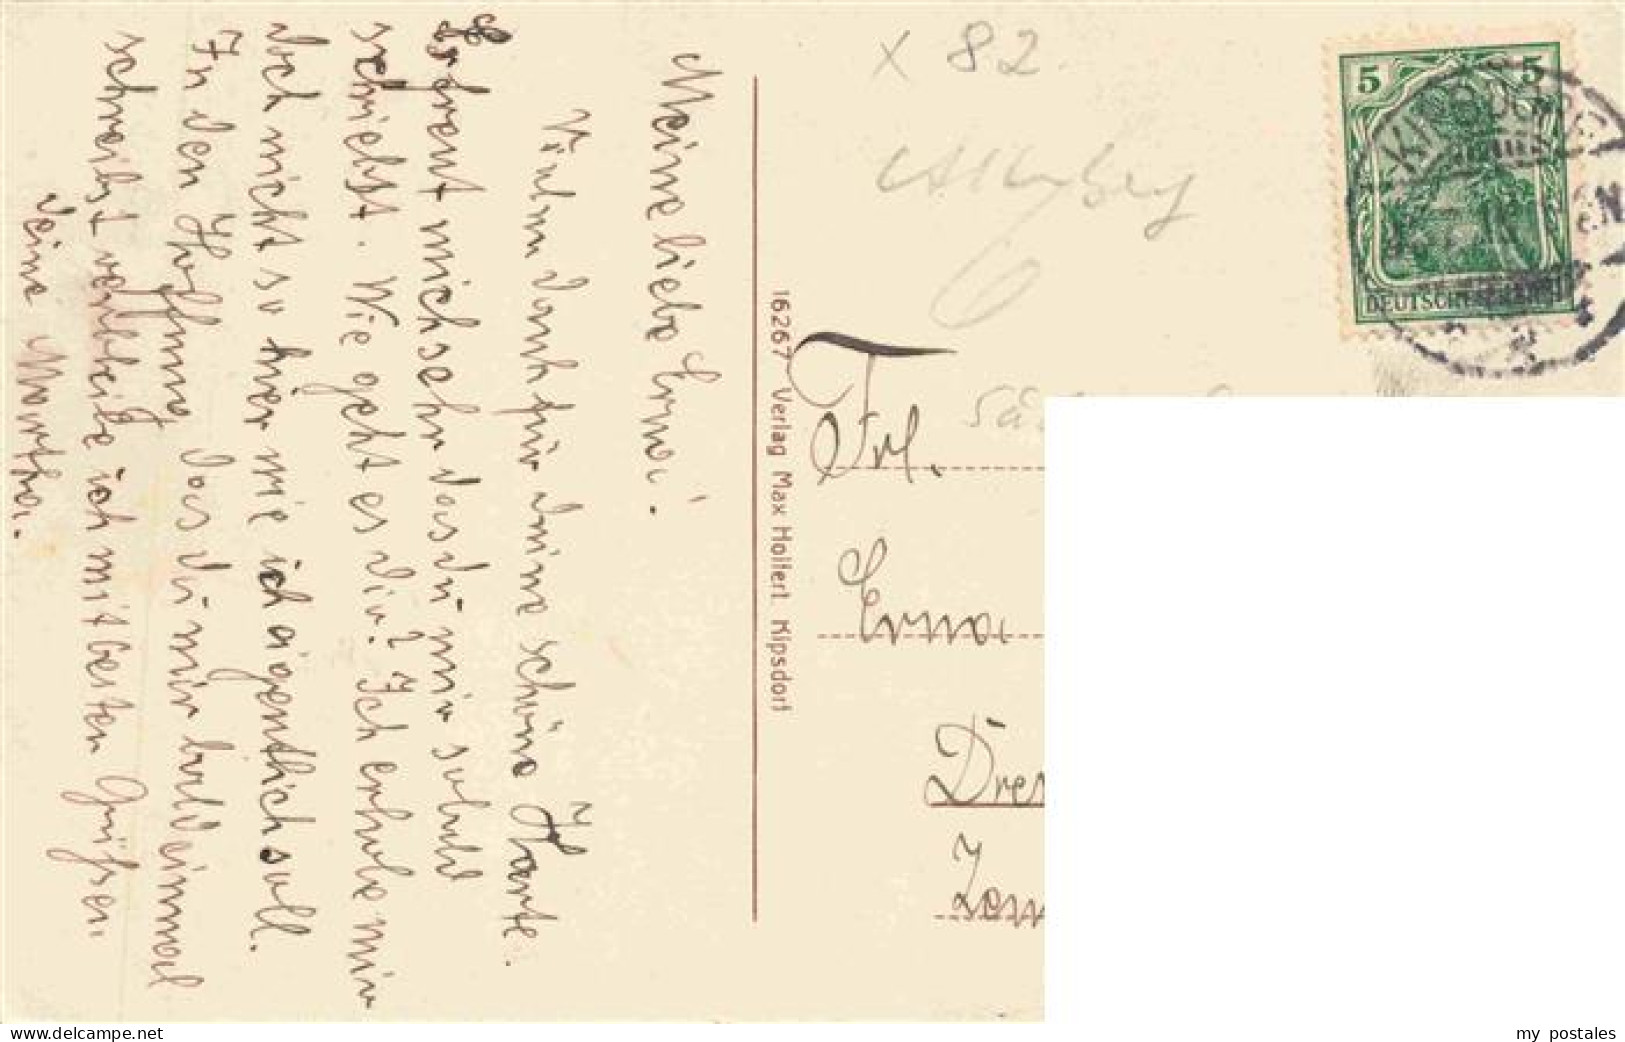 Meine liebe Erna!
Vielen Dank für deine schöne Karte.
Es freut mich sehr das du mir sobald
schriebst. Wie geht es dir? Ich erhole mir
doch nicht so hier wie ich eigentlich soll.
In den Hoffnung das du mir bald einmal
schreibst verbleibe ich mit besten Grüßen
deine Martha.
16267 Verlag Max Hollert Kipsdorf
x 82
5 5
KIPSDORF
DEUTSCHES REICH
Frl.
Erna
Dres
my postales